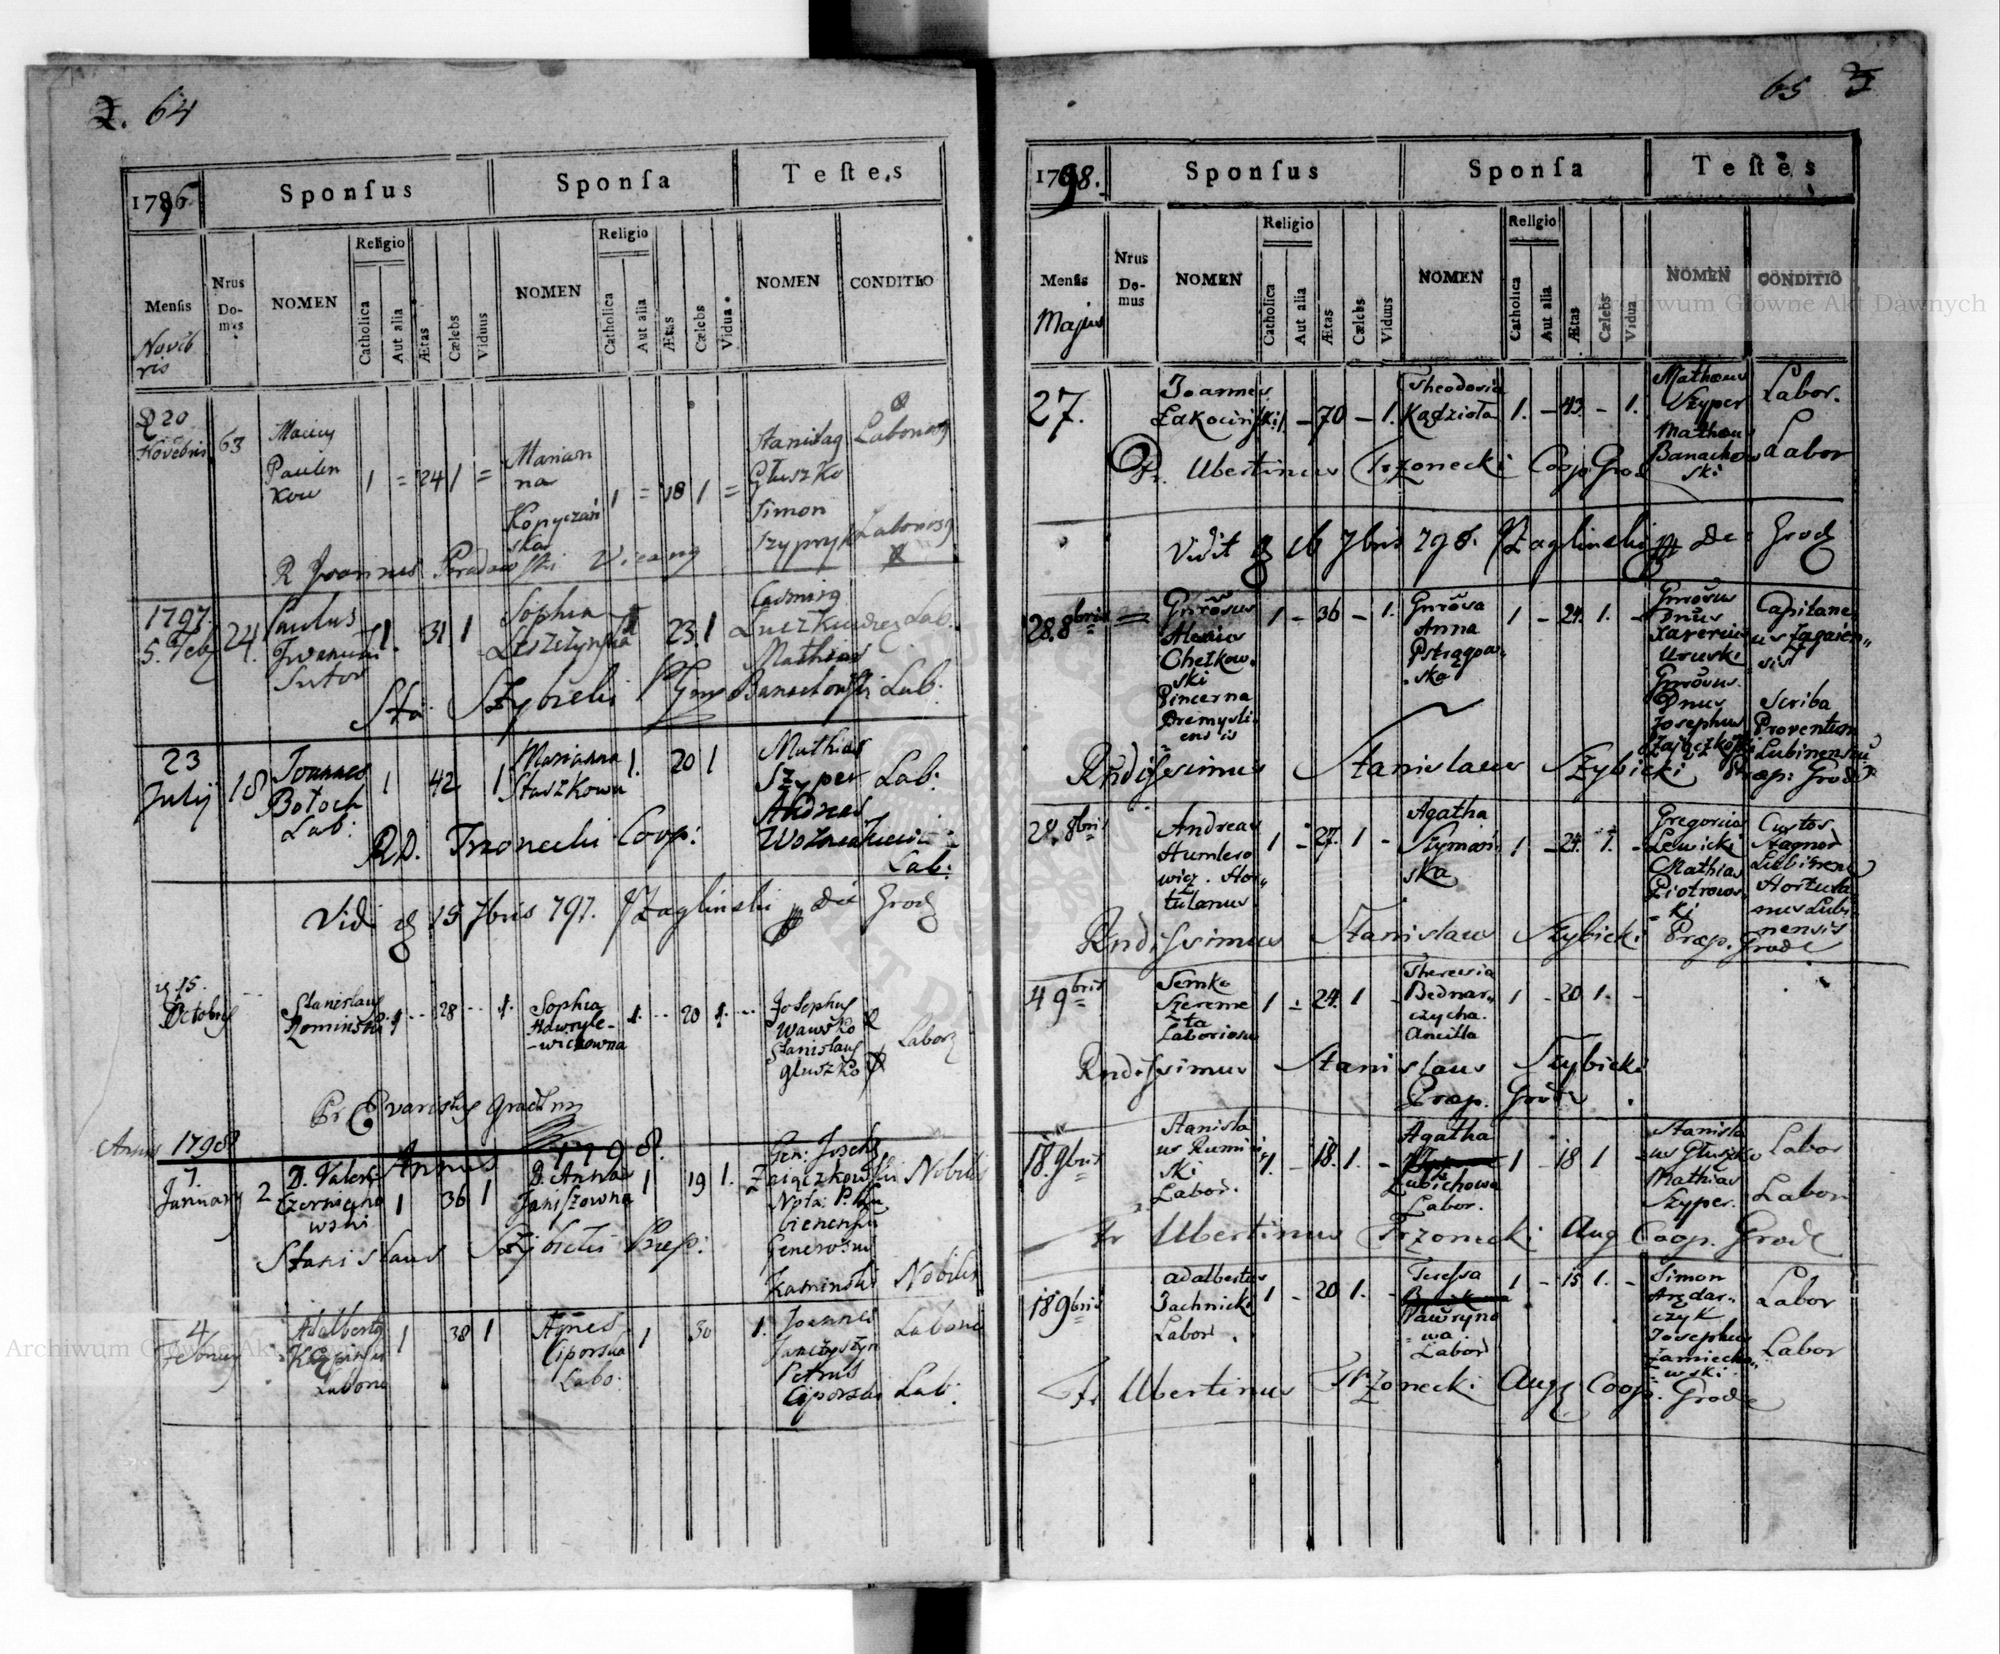 2. 64
1796
Sponſus
Sponſa
Teſtes
Menſis
Novēb
ris
Nrus
Do-
mus
NOMEN
Religio
Catholica
Aut alia
Ætas
Cælebs
Viduus
NOMEN
Religio
Catholica
Aut alia
Ætas
Cælebs
Vidua
NOMEN
CONDITIO
20
63
Pauten
kow
1 = 24 1 =
Marian
na
Kopyczań
ska
1 = 18 1 =
Stanislag
Głuszko
Simon
Szypryk
Laboriosg
Laboriosg
R Joannes
1797
5. Feb
24.
Paulus
Iwanucki
Sutor
1. 31 1
Sophia
Leszczynska
23. 1
Casmirg
Lab.
Mathias
Banachowski
Lab.
Sta: Szybicki
23
July
18
Joannes
Botoch
Lab:
1 42 1
Marianna
Staszkowa
1. 20 1
Mathias
Szyper
Lab:
Andreas
Lab:
RD. Trzonecki Coop:
Vidi 15 7bris 797. Zaglinski de Grod
15.
Octobris
Stanislaus
Rominski
1 28 1.
Sophia
Hawryle-
-wiczowna
1. 20 1.
Josephus
Wawsko
Stanislaus
Gluszko
Labor
Pr Evaristus
Annus 1798
Annus 1798.
7.
January
2
D. Valen
Czerniecho
wski
1 36 1
D. Anna
Janiszowna
1 19 1.
Gen: Joseph
Zajączkowski
Nobilis
Generosus
Kaminski
Nobilis
Stanislaus Szybicki Præp:
4
Februar
Adalbertg
Laborio
1 38 1
Agnes
Ciporska
Labo:
1 30 1.
Joannes
Laborio
Petrus
Ciporski
Lab:
65 3
1798.
Sponſus
Sponſa
Teſtes
Menſis
Majus
Nrus
Do-
mus
NOMEN
Religio
Catholica
Aut alia
Ætas
Cælebs
Viduus
NOMEN
Religio
Catholica
Aut alia
Ætas
Cælebs
Vidua
NOMEN
CONDITIO
27.
Joannes
Łakocinski
1. - 70 - 1.
Theodosia
Kądziola
1. - 43. - 1.
Mathæus
Szyper
Labor.
Mathæus
Banachow
ski
Labor
Fr. Ubertinus Trzonecki Coop. Grod
Vidit 16 7bris 798. Zaglinski de Grod
28. 8bris
Gnrosus
Alexius
Chełkow.
ski
Pincerna
Premysli
ensis
1 - 36 - 1.
Gnrosa
Anna
Pstrągow-
ska
1 - 24. 1. -
Gnrosus
Dnus
Xaverius
Uruski
Capitane
us Zagaien
sis
Gnrosus
Dnus
Josephus
Zajączkowski
Scriba
Proventum
Lubinensis
Rndissimus Stanislaus Szybicki Præp: Grode
28. 8bris
Andreas
Humlero
wicz. Hor
tulanus
1 - 27. 1 -
Agatha
Szymań
ska
1 - 24. 1. -
Gregorius
Lewicki
Mathias
Piotrows
ki
Custos
Stagnor
Lubinens
Hortula
nus Lubi
nensis
Rndissimus Stanislaus Szybicki Præp. Grode
4 9bris
Semko
Szereme
ta
Laboriosus
1 - 24. 1 -
Theresia
Bednar
czycha.
Ancilla
1 - 20 1. -
Rndissimus Stanislaus Szybicki
Præp. Grode.
18. 9bris
Stanisla
us Rumin
ski
Labor.
1. - 18. 1. -
Agatha
Zubichowa
Labor.
1 - 18 1 -
Stanisla
us Gluszko
Labor
Mathias
Szyper.
Labor
Fr Ubertinus Trzonecki Aug Coop. Grode
18 9bris
Adalbertus
Zachnicki
Labor.
1 - 20 1. -
Teressa
Wawryno
wa
Labor
1 - 15 1. -
Simon
Arędar
czyk
Labor
Josephus
Zamiecho
wski
Labor
Fr Ubertinus Trzonecki Aug Coop. Grode
Archiwum Główne Akt Dawnych
Archiwum Główne Akt Dawnych